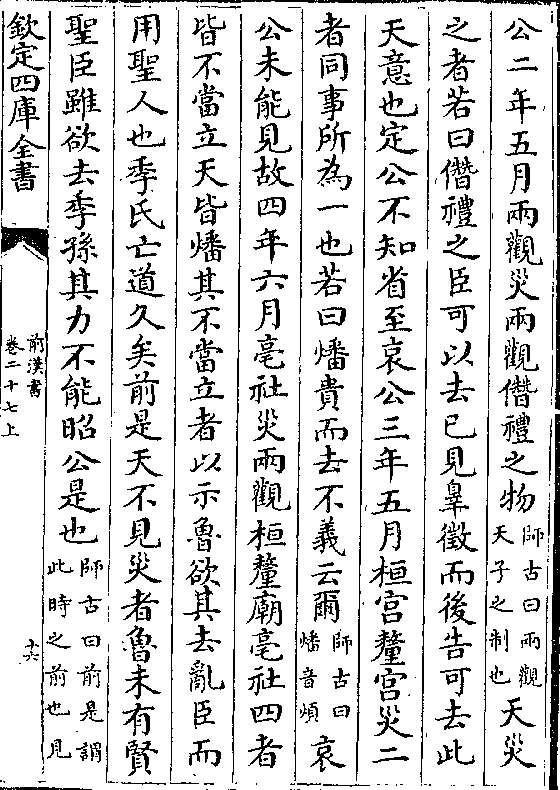 公二年五月兩觀災兩觀僭禮之物師古曰兩觀天子之制也天災
之者若曰僭禮之臣可以去已見辠徵而後告可去此
天意也定公不知省至哀公三年五月桓宫釐宫災二
者同事所為一也若曰燔貴而去不義云爾師古曰燔音煩哀
公未能見故四年六月亳社災兩觀桓釐廟亳社四者
皆不當立天皆燔其不當立者以示魯欲其去亂臣而
用聖人也季氏亡道久矣前是天不見災者魯未有賢
聖臣雖欲去季孫其力不能昭公是也師古曰前是謂此時之前也見
欽定四庫全書
前漢書
卷二十七上
十六